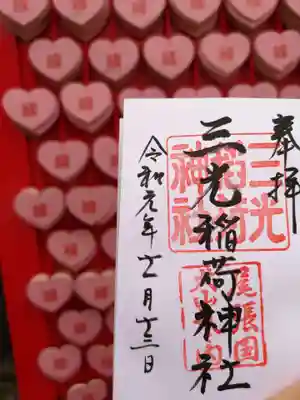 奉拝
三光稲荷神社
令和元年十二月十三日
三光
稲荷
神社
尾張国
犬山城内